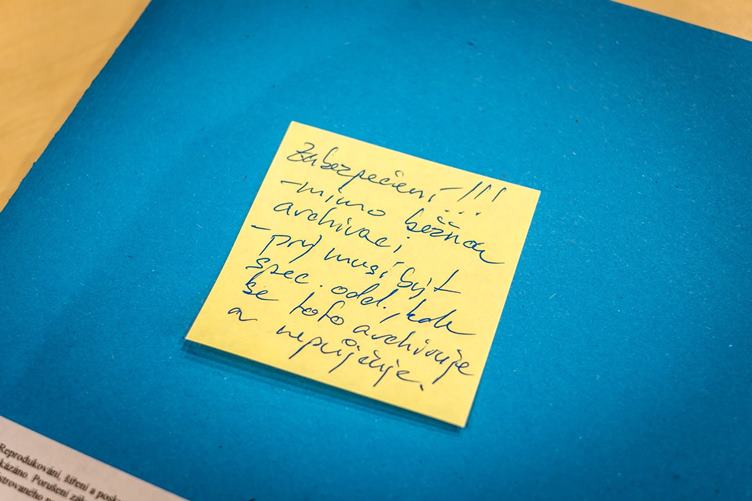 Zabezpečení - !!!
- mimo běžnou
archivaci
- prý musí být
spec. odd., kde
se toto archivuje
a nepůjčuje.
Reprodukování, šíření a
kázáno. Porušení